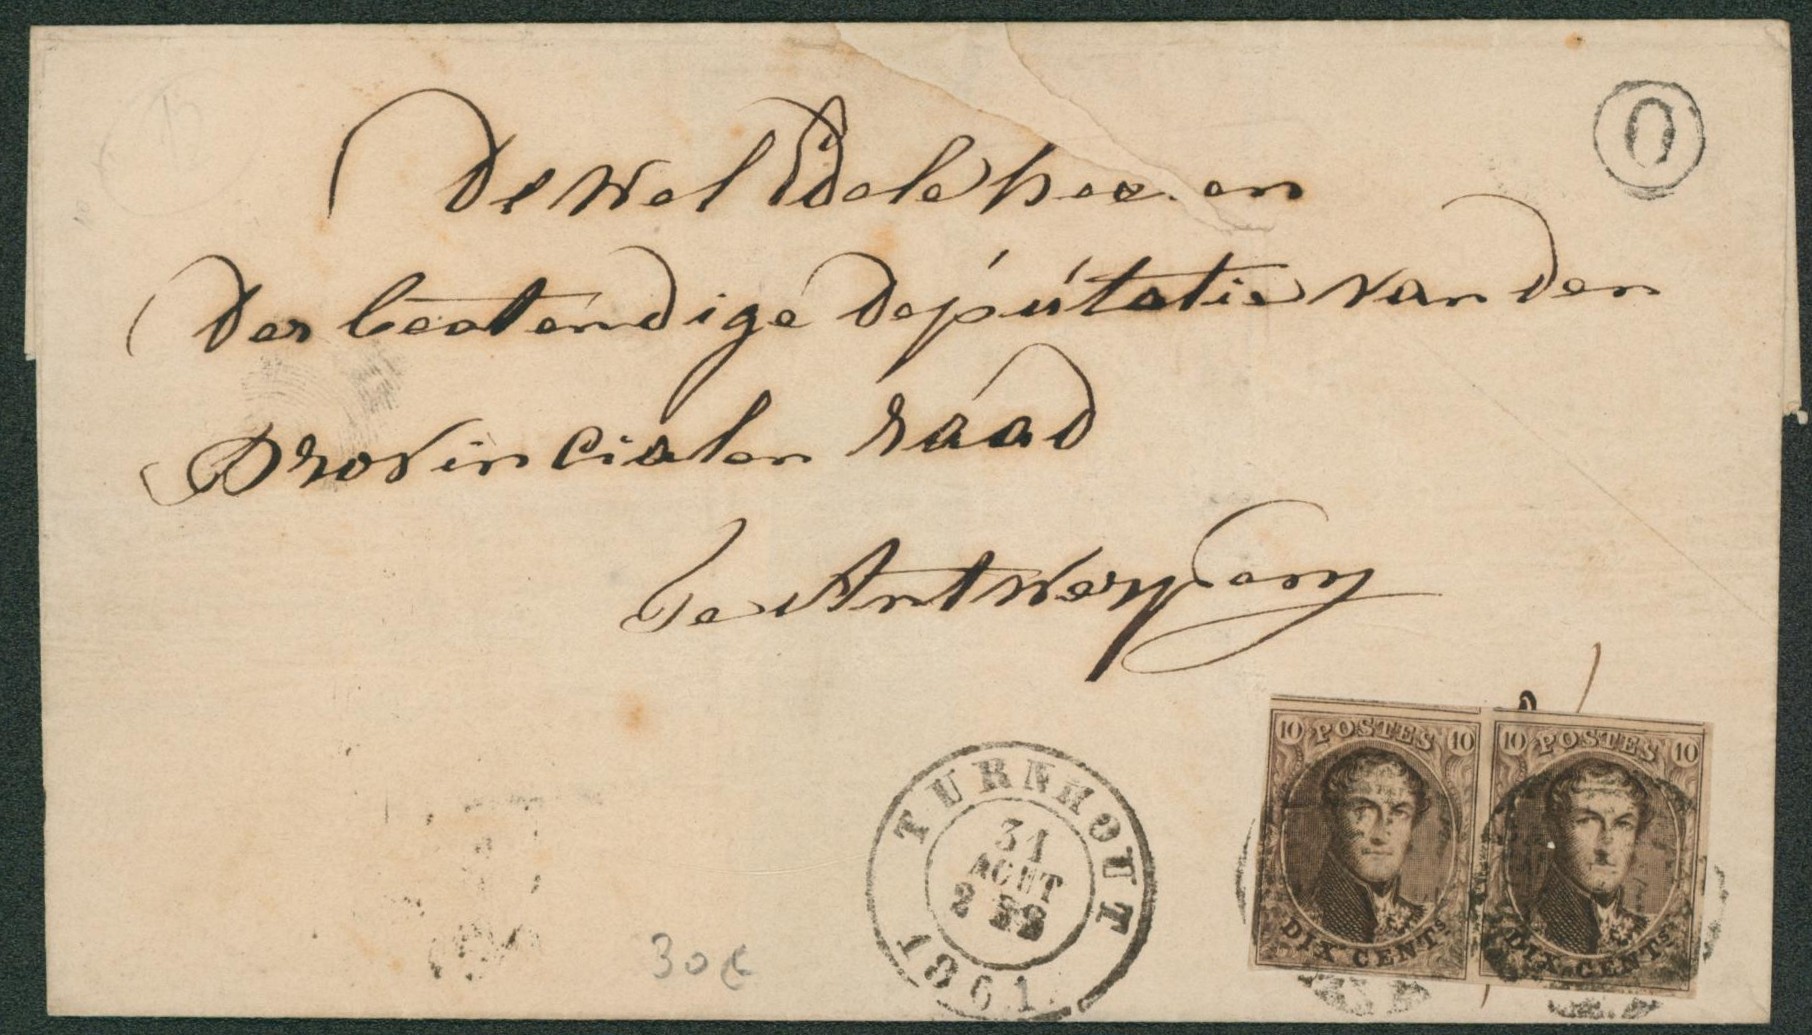 O
De Wel Edele heeren
Der bestendige Deputatie van den
Provincialen raad
Te Antwerpen
10 POSTES 10
DIX CENTS
10 POSTES 10
DIX CENTS
TURNHOUT
31
AOUT
1861
30€